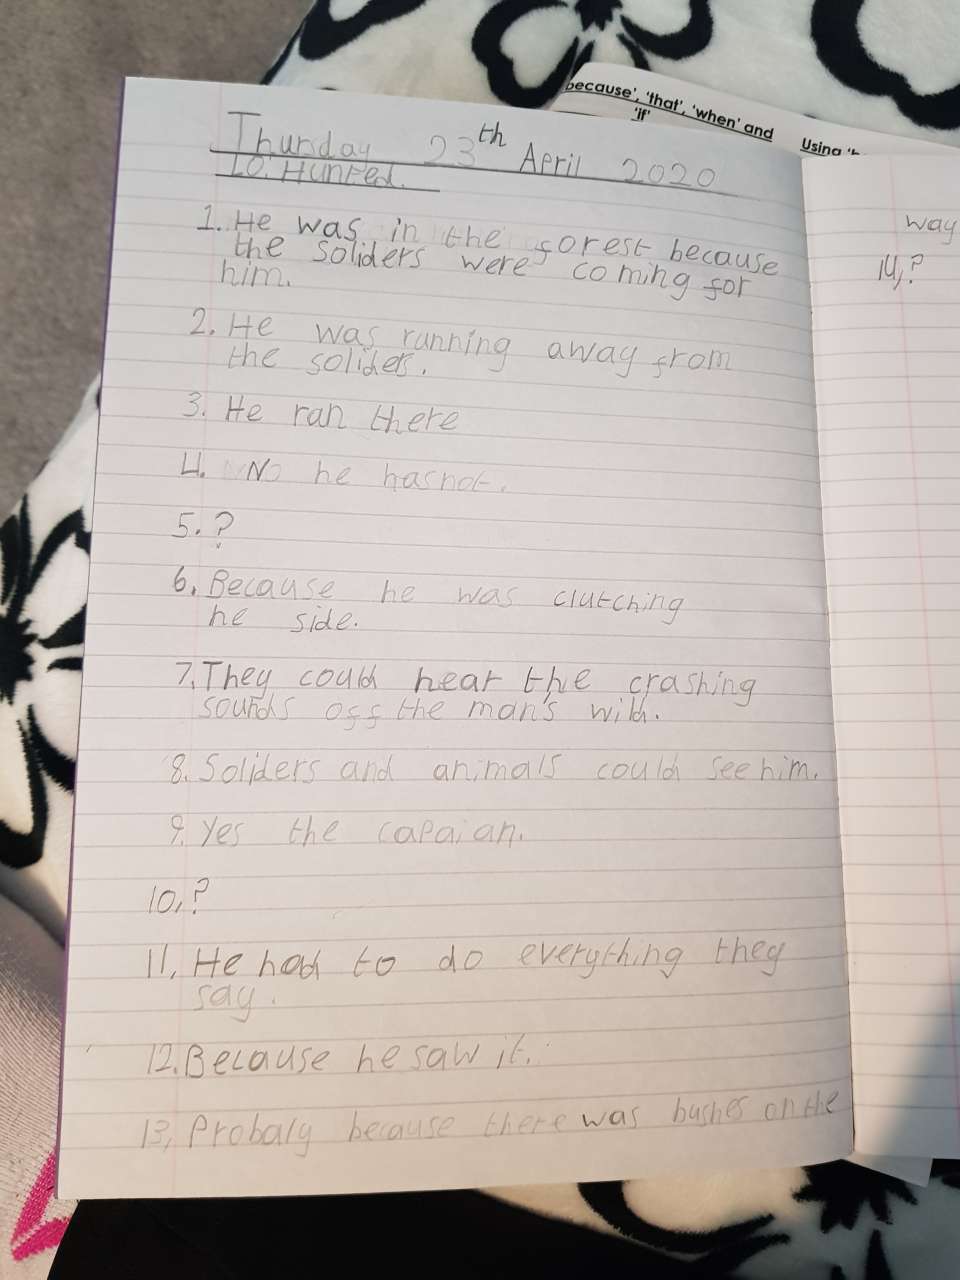 because', 'that', 'when' and
'if'
Using
Thursday 23th April 2020
LO. Hunted.
1. He was in the forest because
the soliders were coming for
him.
2. He was running away from
the soliders.
3. He ran there
4. No he hasnot.
5. ?
6. Because he was clutching
he side.
7. They could hear the crashing
sounds off the man's wild.
8. Soliders and animals could see him.
9. Yes the capaian.
10, ?
11, He had to do everything they
say.
12. Because he saw it.
13, Probaly because there was bushes on the
way
14, ?